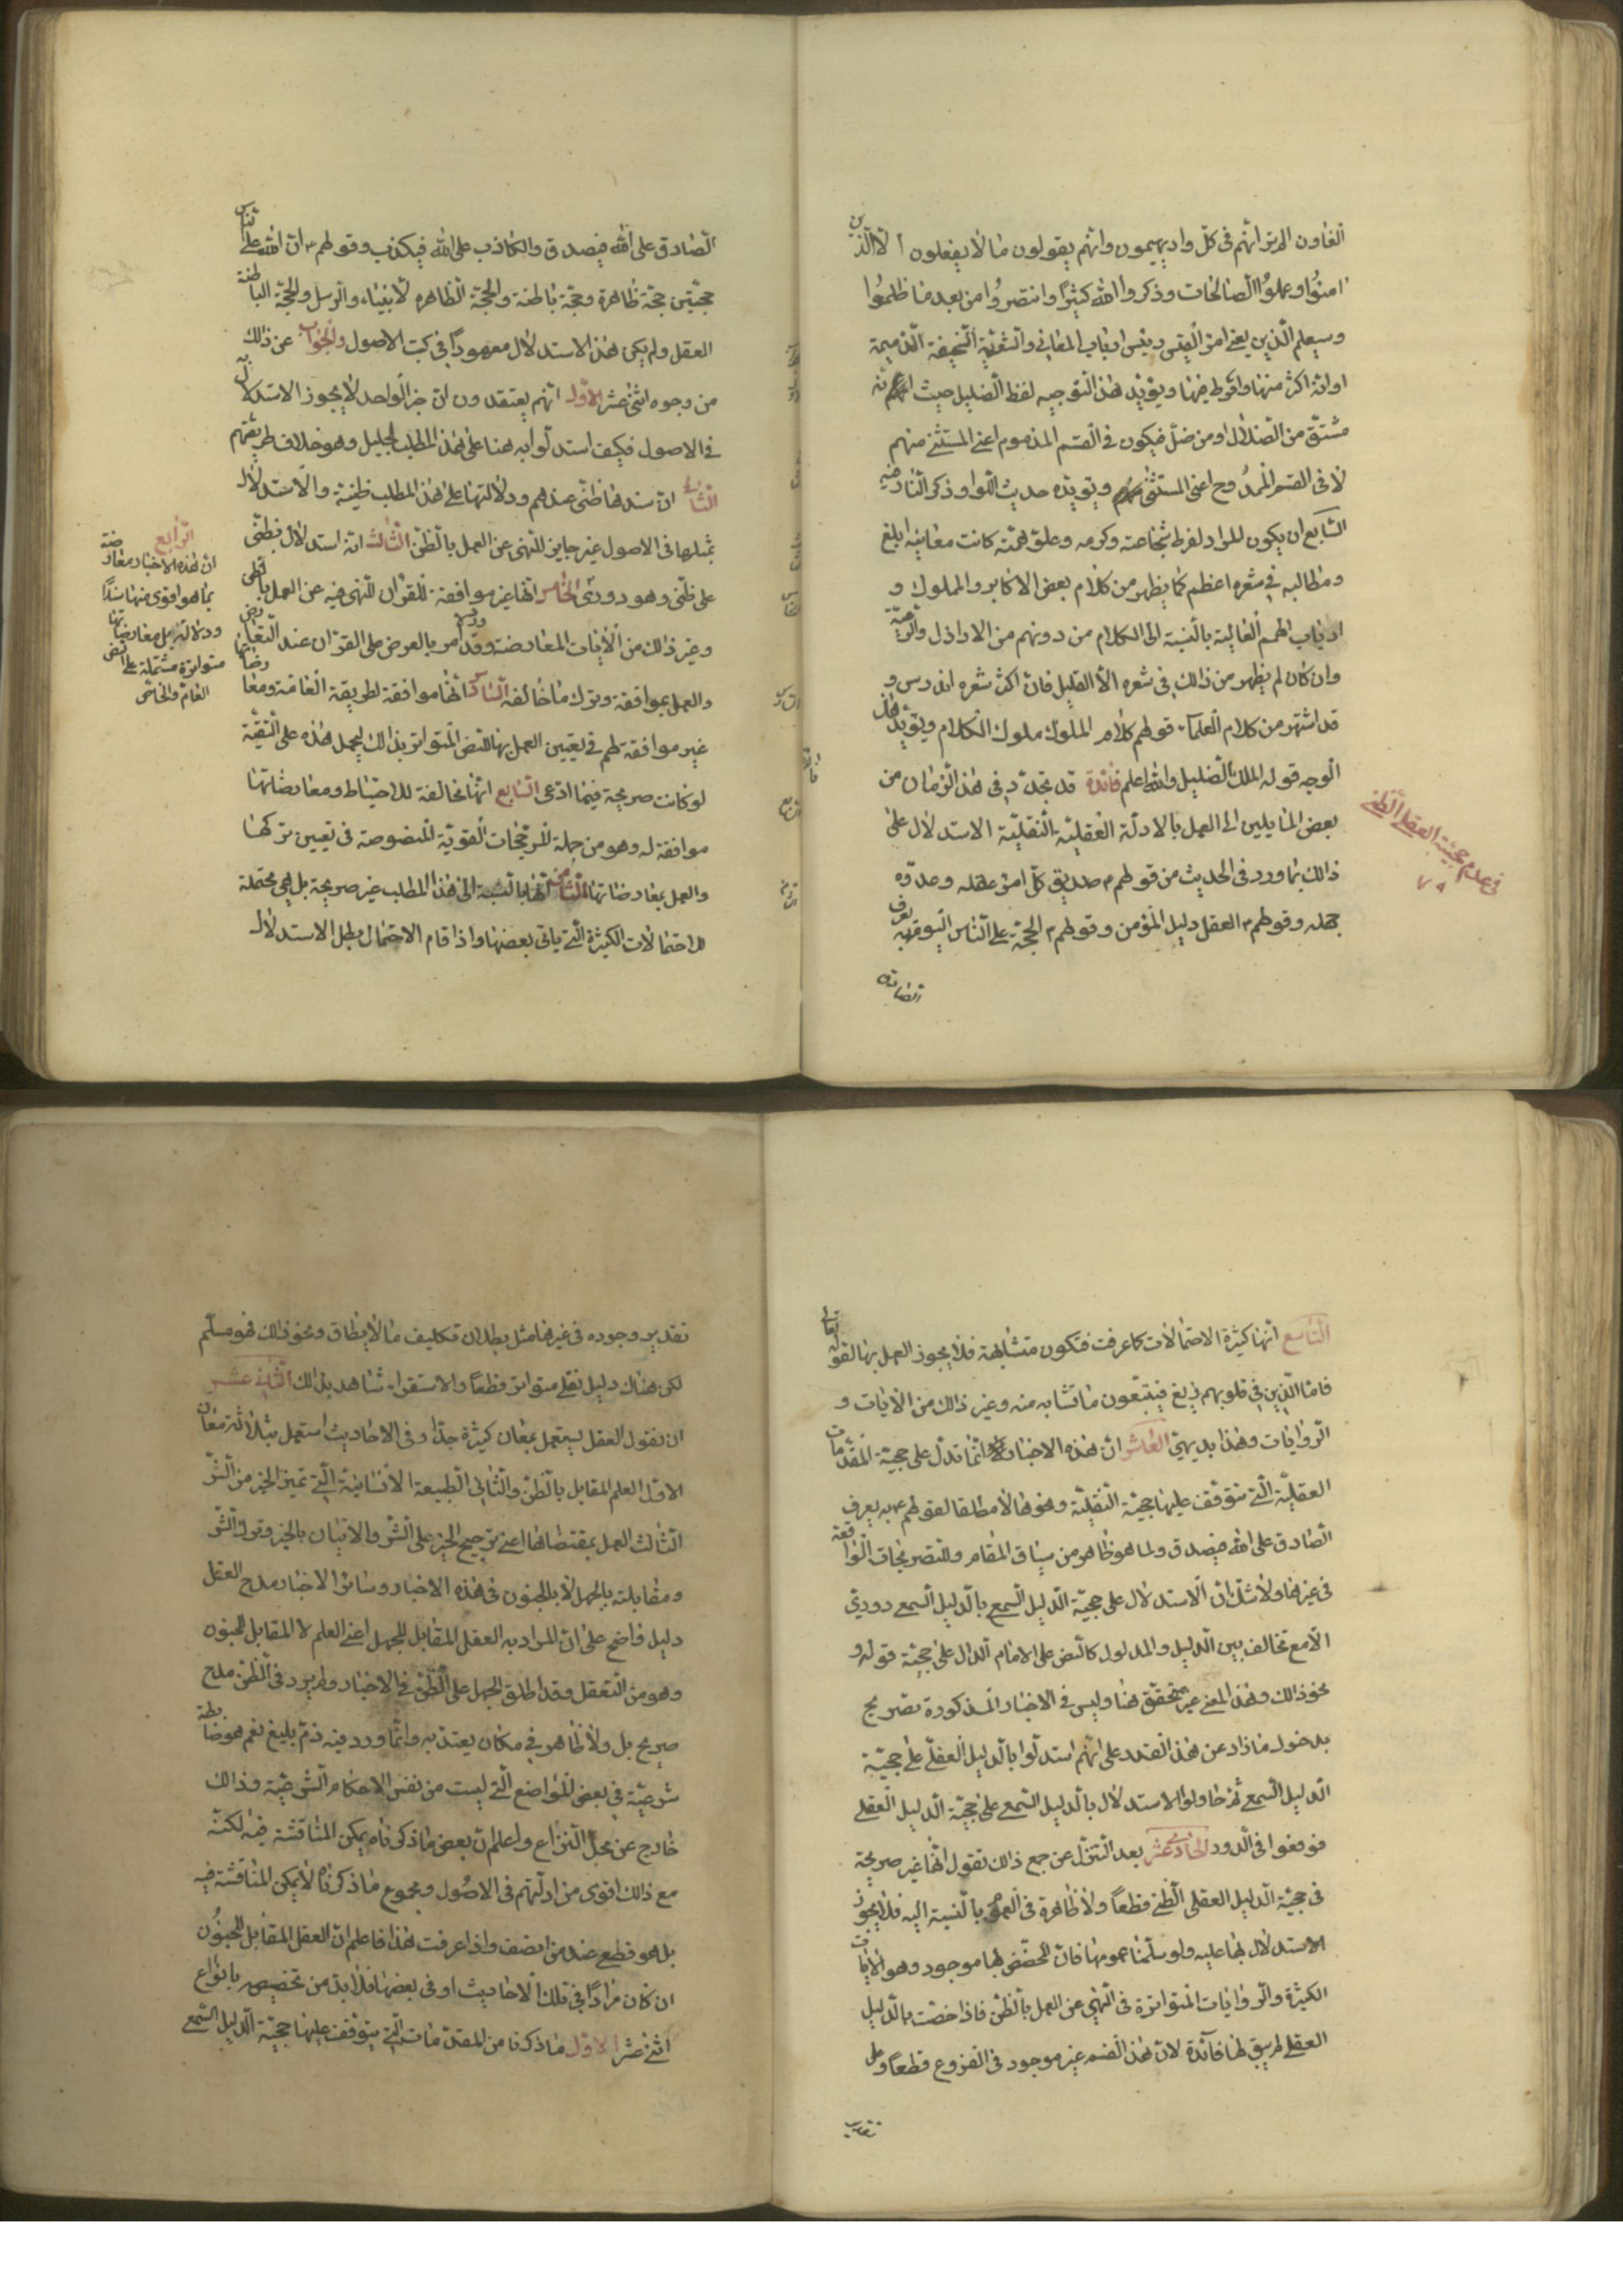 الغاون الم تر انهم فى كلّ واد يهيمون وانهم يقولون ما لا يفعلون الّا الّذين
امنوا وعملوا الصالحات وذكروا الله كثيرًا وانتصروا من بعد ما ظلموا
وسيعلم الّذين يعنى امرؤ القيس رئيس ارباب المعانى والشعرية السخيفة الذميمة
او انه اكثر منها وافرط فيها ويؤيّد هذا التوجيه لفظ الضليل حيث انّه
مشتق من الضلال او من ضلّ فيكون فى القسم المذموم اعنى المستثنى منهم
لا فى القسم الممدوح اعنى المستثنى ويؤيّده حديث اللوا وذكر النار فيه
السابع ان يكون المراد لفرط شجاعته وكرمه وعلوّ همّته كانت معانيه ابلغ
ومطالبه فى شعره اعظم كما يظهر من كلام بعض الاكابر والملوك و
ارباب الهمم العالية بالنسبة الى الكلام من دونهم من الاراذل والرعيّة
وان كان لم يظهر من ذلك فى شعره الّا القليل فان اكثر شعره اندرس و
قد اشتهر من كلام العلماء قولهم كلام الملوك ملوك الكلام ويؤيّد هذا
الوجه قوله الملك الضليل والله اعلم فائدة قد تجدّد فى هذا الزمان من
بعض المايلين الى العمل بالادلّة العقليّة النقليّة الاستدلال على
ذلك بما ورد فى الحديث من قولهم ع صديق كلّ امرئ عقله وعدوّه
جهله وقولهم ع العقل دليل المؤمن وقولهم ع الحجّة على الناس اليوم يعرف به
الصادق
فى عدم حجيّة العقل الظنى
الصّادق على الله فيصدق والكاذب على الله فيكذب وقولهم ع ان لله على الناس
حجّتين حجّة ظاهرة وحجّة باطنة والحجّة الظاهره الانبياء والرسل والحجّة الباطنة
العقل ولم يكن هذا الاستدلال معهودًا فى كتب الاصول والجواب عن ذلك
من وجوه اثنى عشر الاوّل انهم يعتقدون ان خبر الواحد لا يجوز الاستدلال به
فى الاصول فكيف استدلّوا به هنا على هذا المطلب الجليل وهو خلاف طريقتهم
الثانى ان سندها ظنّى عندهم ودلالتها على هذا المطلب ظنيّة والاستدلال
بمثلها فى الاصول غير جايز للنهى عن العمل بالظنّ الثالث انه استدلال بظنّى
على ظنّى وهو دورىّ الخامس انها غير موافقة للقران للنهى فيه عن العمل بالظن
وغير ذلك من الايات المعارضة وقد ورد الامر بالعرض على القران عند التعارض
والعمل بموافقه وترك ما خالفه السادس انها موافقة لطريقة العامّة ومعارضاتها
غير موافقة لهم فيتعيين العمل بها للنص المتواتر بذلك ليحمل هذه على التقيّة
لو كانت صريحة فيما ادّعى السابع انها مخالفة للاحتياط ومعارضاتها
موافقة له وهو من جملة المرجّحات القويّة المنصوصة فى تعيين تركها
والعمل بمعارضاتها الثامن انها بالنسبة الى هذا المطلب غير صريحة بل هى محتملة
للاحتمالات الكثيرة الّتى ياتى بعضها واذا قام الاحتمال بطل الاستدلال
الرابع
ان هذه الاخبار معارضة
بما هو اقوى منها سندًا
ودلالة بل معارضاتها
متواترة مشتملة على النص
العام والخاص
التاسع انها كثيرة الاحتمالات كما عرفت فتكون متشابهة فلا يجوز العمل بها لقوله تعالى
فامّا الّذين فى قلوبهم زيغ فيتّبعون ما تشابه منه وغير ذلك من الايات و
الروايات وهذا بديهىّ العاشر ان هذه الاخبار انّما تدلّ على حجية المقدّمات
العقليّة الّتى تتوقف عليها حجيّة النقليّة ونحوها لا مطلقا لقولهم ع به يعرف
الصّادق على الله فيصدق ولما هو ظاهر من سياق المقام وللتصريحات الواقعة
فى غيرها ولا شكّ ان الاستدلال على حجيّة الدليل السمع بالدليل السمع دورىّ
الّا مع تخالف بين الدليل والمدلول كالنص على الامام الدال على حجيّة قوله و
نحو ذلك وهذا المعنى غير متحقق هنا وليس فى الاخبار المذكورة تصريح
بدخول ما زاد عن هذا القدر على انهم استدلّوا بالدليل العقلى على حجيّة
الدليل السمع ثم حاولوا الاستدلال بالدليل السمع على حجيّة الدليل العقلى
فوقعوا فى الدور الحادى عشر بعد التنزّل عن جمع ذلك نقول انها غير صريحة
فى حجيّة الدليل العقلى الظنى قطعًا ولا ظاهرة فى العموم بالنسبة اليه فلا يجوز
الاستدلال بها عليه ولو سلّمنا عمومها فان المخصّص لها موجود وهو الايات
الكثيرة والروايات المتواترة فى النهى عن العمل بالظنّ فاذا خصّت بالدليل
العقلى لم يبق لها فائدة لان هذا القسم غير موجود فى الفروع قطعًا وعلى
تقدير
تقدير وجوده فى غيرها مثل بطلان تكليف ما لا يطاق ونحو ذلك فهو مسلّم
لكن هناك دليل نقلى متواتر قطعًا والاستقراء شاهد بذلك الثانى عشر
ان نقول العقل يستعمل بمعان كثيرة جدّا وفى الاحاديث استعمل بثلاثة معان
الاوّل العلم المقابل بالظنّ والثانى الطبيعة الانسانية الّتى تميز الخير من الشرّ
الثالث العمل بمقتضاها اعنى ترجيح الخير على الشرّ والاتيان بالخير وترك الشرّ
ومقابلته بالجهل لا بالجنون فى هذه الاخبار وسائر الاخبار مدح العقل
دليل واضح على ان المراد به العقل المقابل للجهل اعنى العلم لا المقابل للجنون
وهو من التعقل وقد اطلق الجهل على الظنّ فى الاخبار ولم يرد فى الظنّ مدح
صريح بل ولا ظاهر فى مكان يعتدّ به وانّما ورد فيه ذمّ بليغ نعم هو ضابطة
شرعيّة فى بعض المواضع الّتى ليست من نفس الاحكام الشرعيّة وذلك
خارج عن محل النزاع واعلم ان بعض ما ذكرناه يمكن المناقشة فيه لكنّه
مع ذلك اقوى من ادلّتهم فى الاصول ومجموع ما ذكرناه لا يمكن المناقشة فيه
بل هو قطعى عند من انصف واذا عرفت هذا فاعلم ان العقل المقابل للجنون
ان كان مرادًا فى تلك الاحاديث او فى بعضها فلا بدّ من تخصيصه بانواع
اثنى عشر الاوّل ما ذكرنا من المقدّمات الّتى يتوقف عليها حجيّة الدليل السّمع